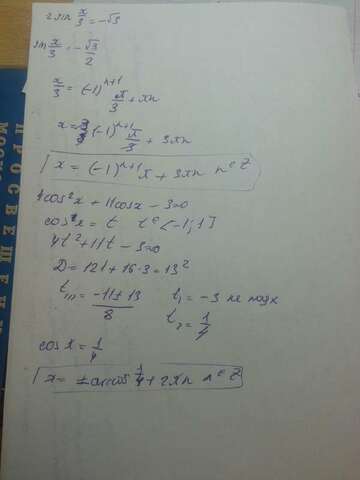 2 sin x/3 = -√3
sin x/3 = -√3/2
x/3 = (-1)^n+1 π/3 + πn
x = 3(-1)^n+1 π/3 + 3πn
x = (-1)^n+1 π + 3πn n ∈ Z
4cos²x + 11cosx - 3=0
cos x = t t ∈ [-1; 1]
4t² + 11t - 3=0
D = 121 + 16·3 = 13²
t₁,₂ = -11 ± 13 / 8 t₁ = -3 не подх
t₂ = 1/4
cos x = 1/4
x = ±arccos 1/4 + 2πn n ∈ Z
ПРОСВЕЩЕНИ
МОСКВ